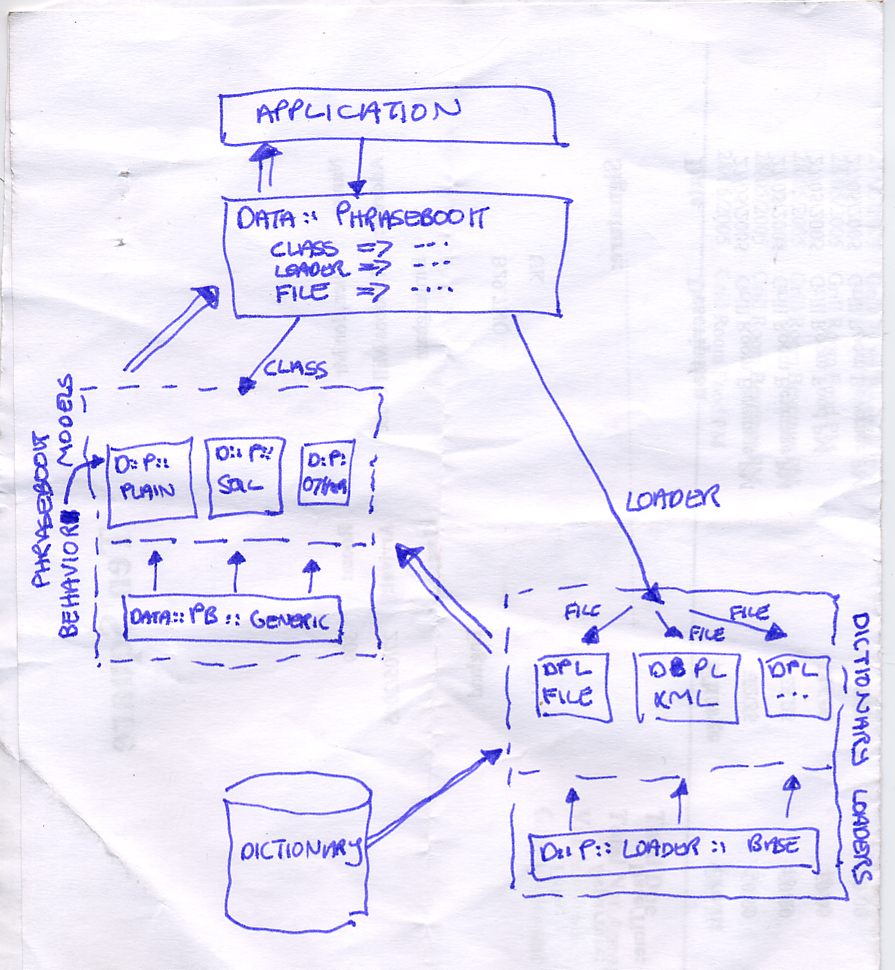 APPLICATION
DATA :: PHRASEBOOK
CLASS => ...
LOADER => ...
FILE => ....
CLASS
PHRASEBOOK
BEHAVIOR MODELS
D::P::
PLAIN
D::P::
SQL
D::P:
OTHER
DATA::PB :: GENERIC
LOADER
FILE
FILE
FILE
DPL
FILE
DPL
XML
DPL
...
D::P:: LOADER :: BASE
DICTIONARY LOADERS
DICTIONARY